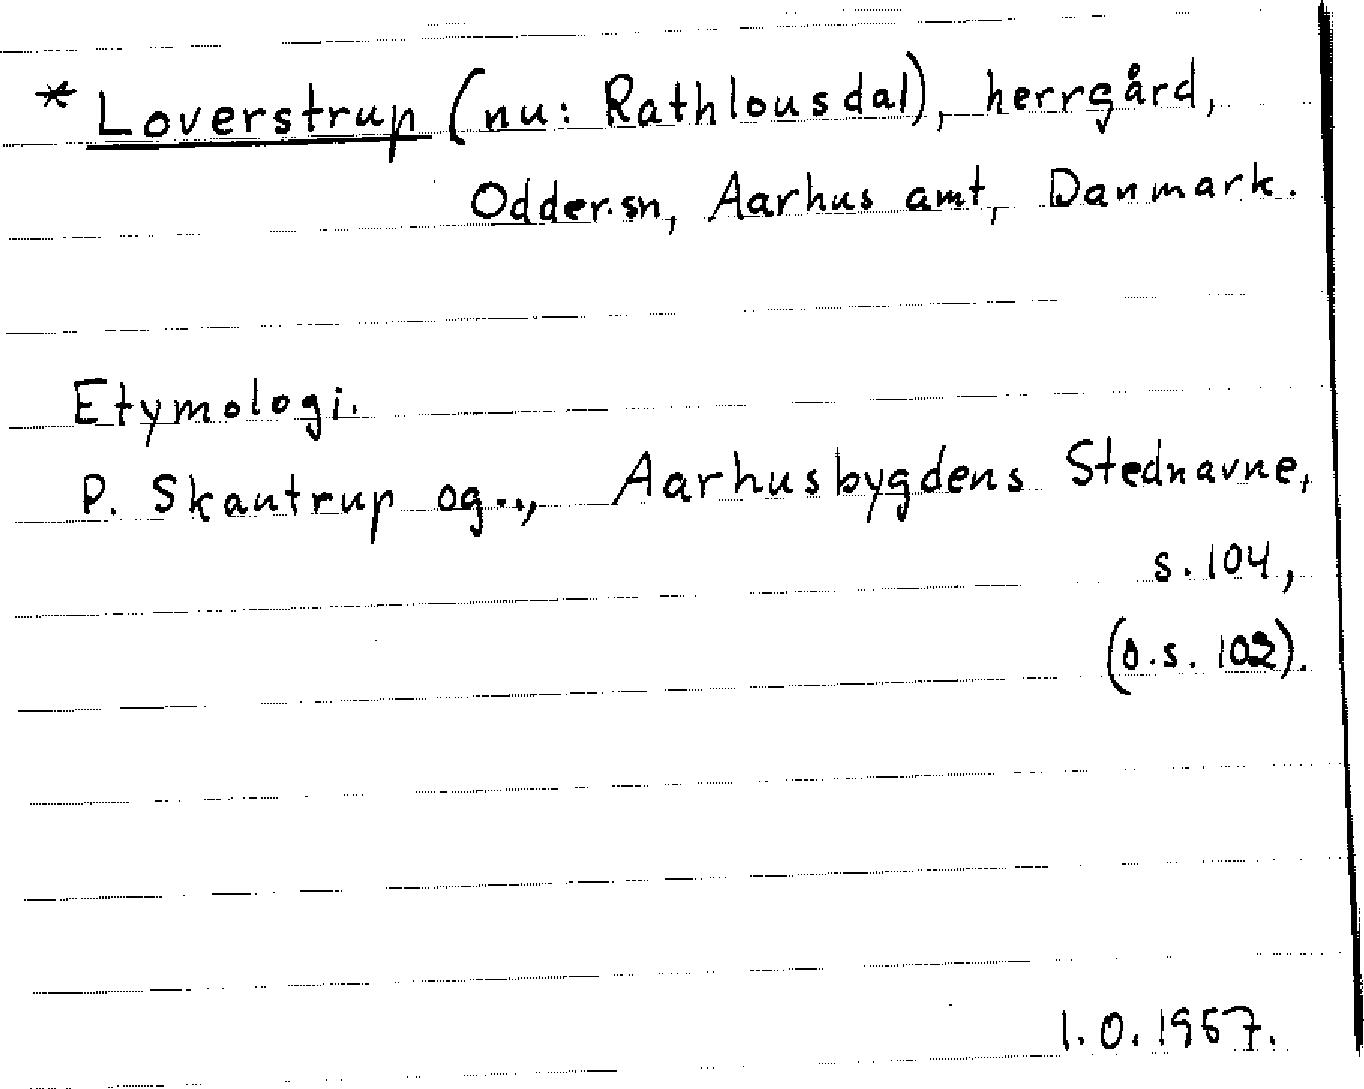 * Loverstrup (nu: Rathlousdal), herrgård,
Odder sn, Aarhus amt, Danmark.
Etymologi.
P. Skautrup og.., Aarhusbygdens Stednavne,
s. 104,
(o.s. 102).
1.0.1957.